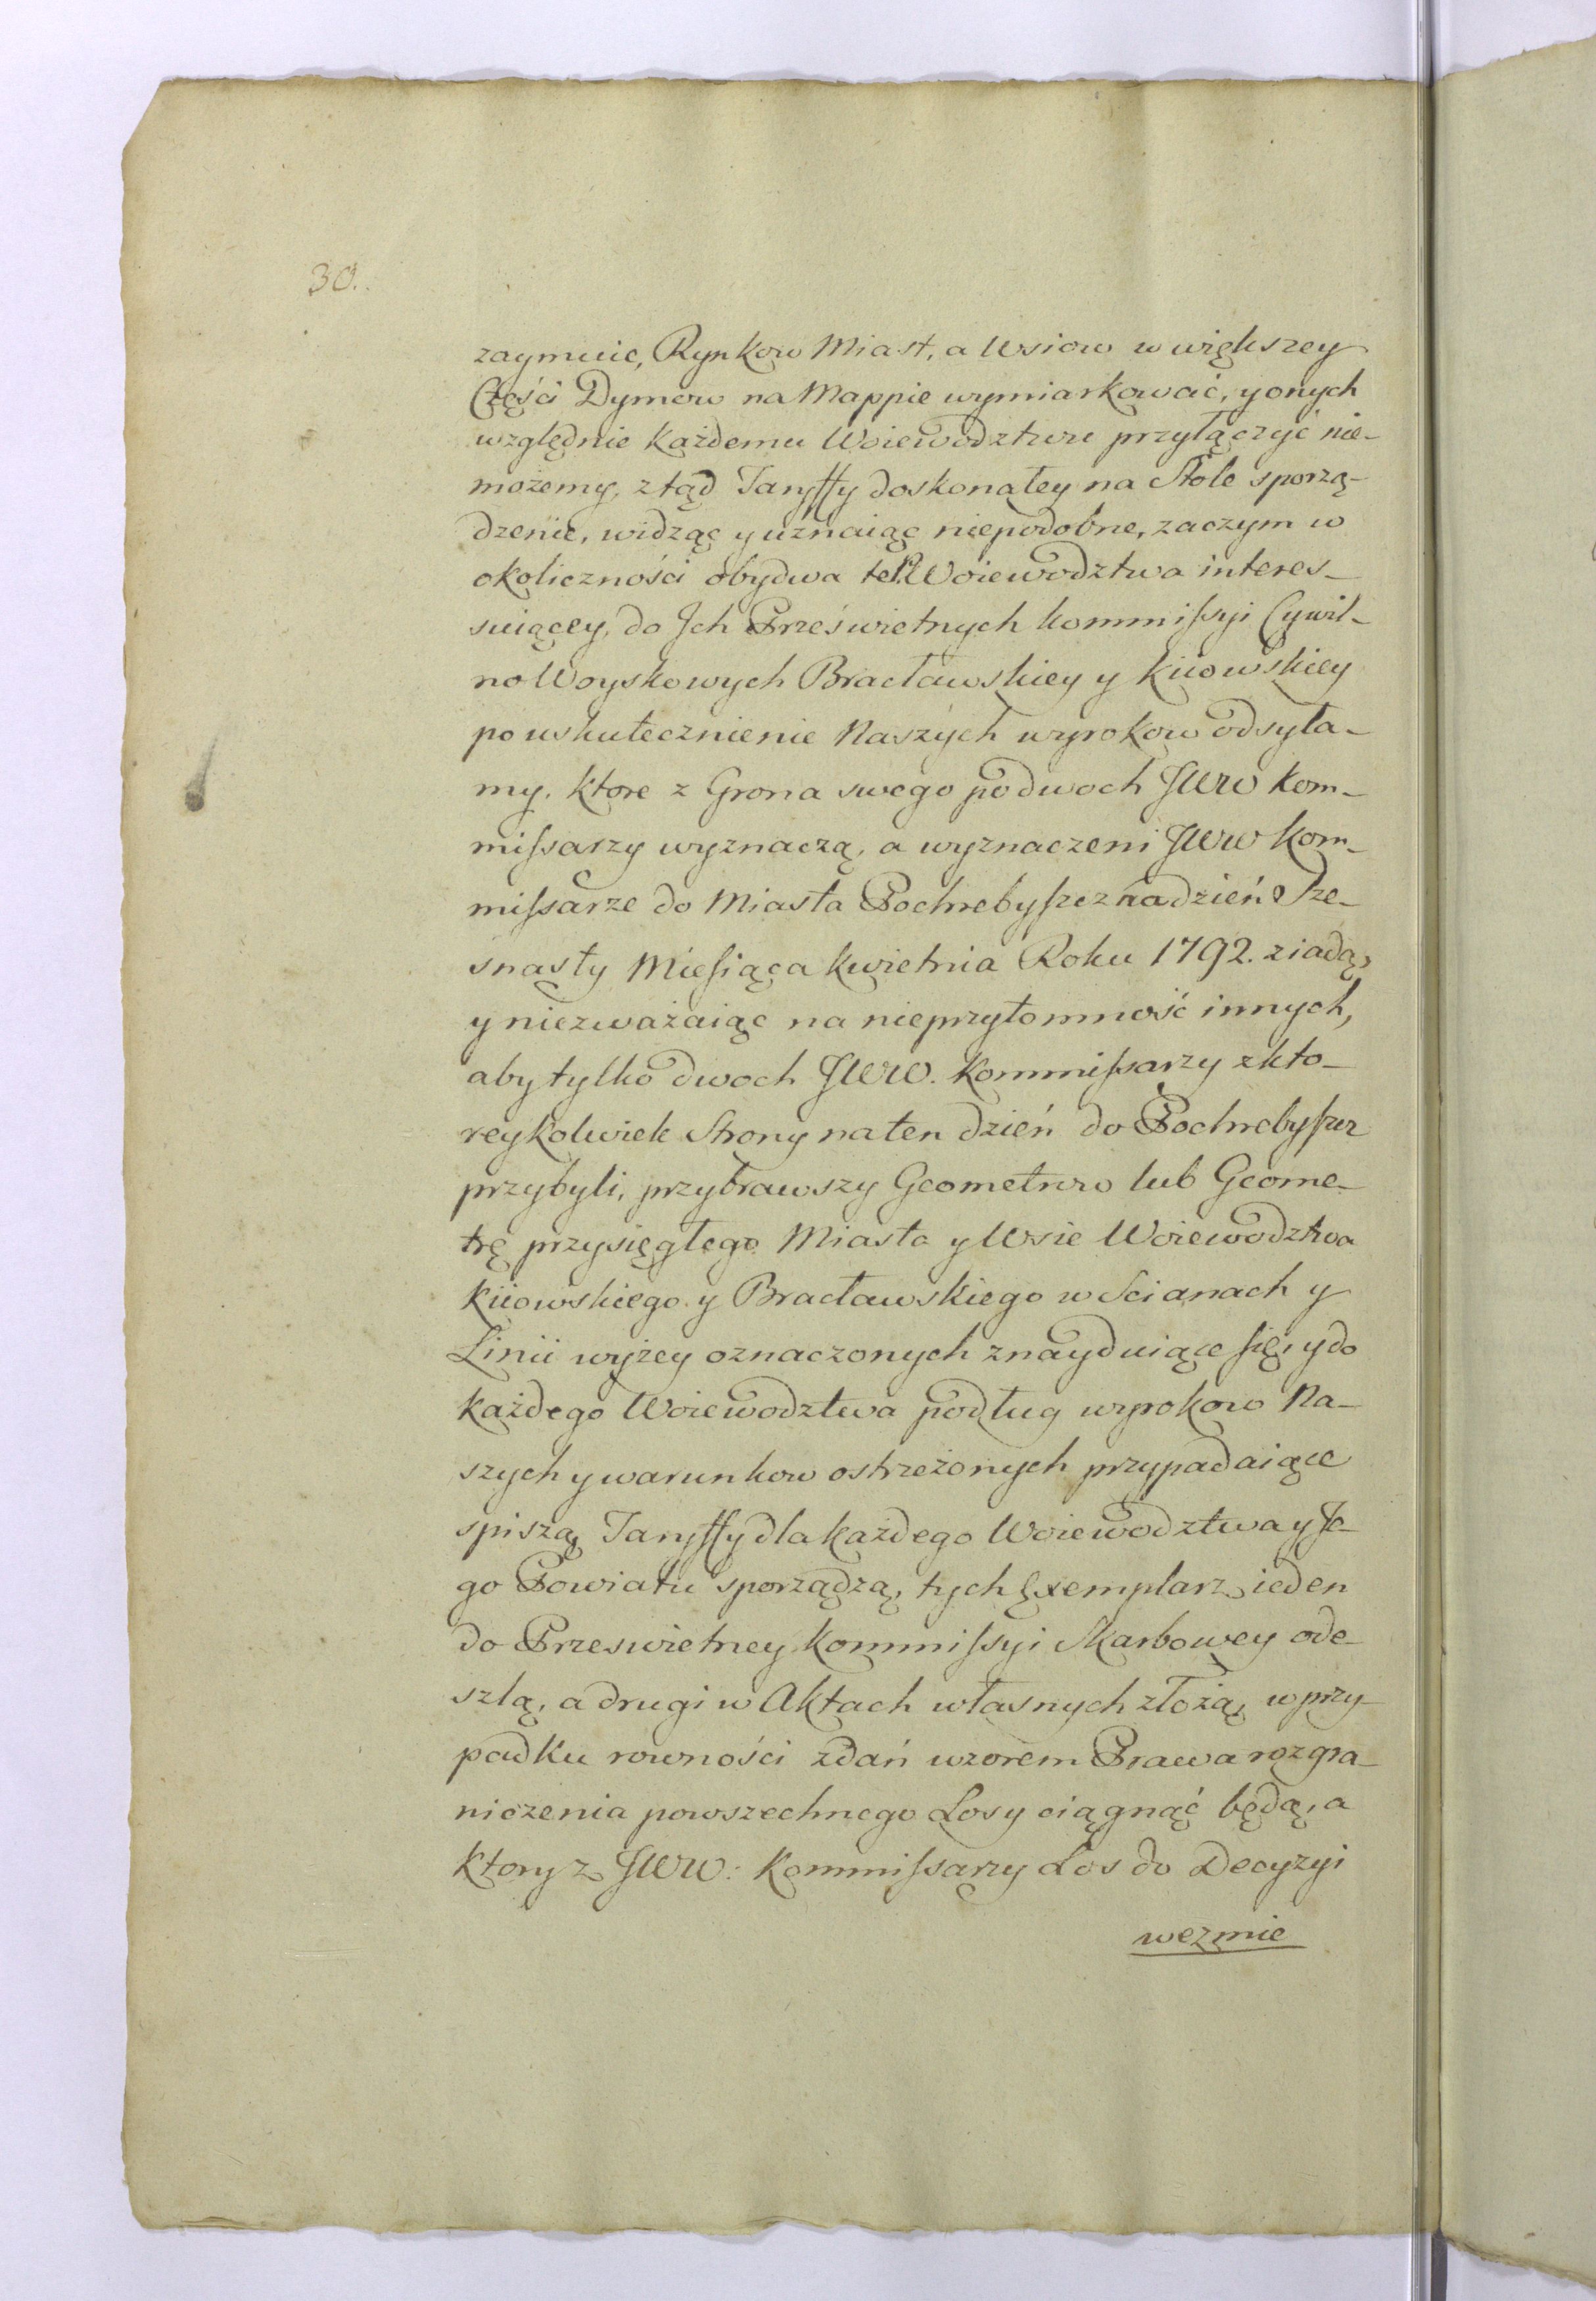 30.
zaymuie, Rynkow Miast, a Wsiow w większey
Części Dymow na Mappie wymiarkować, y onych
względnie każdemu Woiewodztwu przyłączyć nie-
możemy, ztąd Taryffy doskonałey na Stole sporzą-
dzenie, widząc y uznaiąc niepodobne, zaczym w
okoliczności obydwa te Woiewodztwa interes-
suiącey, do Ich Prześwietnych Kommissyi Cywil-
no Woyskowych Bracławskiey y Kiiowskiey
po uskutecznienie Naszych wyrokow odsyła-
my. ktore z Grona swego po dwoch JWW Kom-
missarzy wyznaczą, a wyznaczeni JWW Kom-
missarze do Miasta Pochrebyszcz na dzień Sze-
snasty Miesiąca Kwietnia Roku 1792. ziadą,
y niezważaiąc na nieprzytomność innych,
aby tylko dwoch JWW. Kommissarzy z kto-
reykolwiek Strony na ten dzień do Pochrebyszcz
przybyli, przybrawszy Geometrow lub Geome-
trę przysięgłego Miasta y Wsie Woiewodztwa
Kiiowskiego y Bracławskiego w Scianach y
Linii wyżey oznaczonych znayduiące się, y do
każdego Woiewodztwa podług wyrokow Na-
szych y warunkow ostrzeżonych przypadaiące
spiszą, Taryffy dla każdego Woiewodztwa y Je-
go Powiatu sporządzą, tych Exemplarz ieden
do Przeswietney Kommissyi Skarbowey ode-
szlą, a drugi w Aktach własnych złożą, w przy-
padku rowności zdań wzorem Prawa rozgra-
niczenia powszechnego Losy ciągnąć będą, a
ktory z JWW: Kommissarzy Los do Decyzyi
wezmie